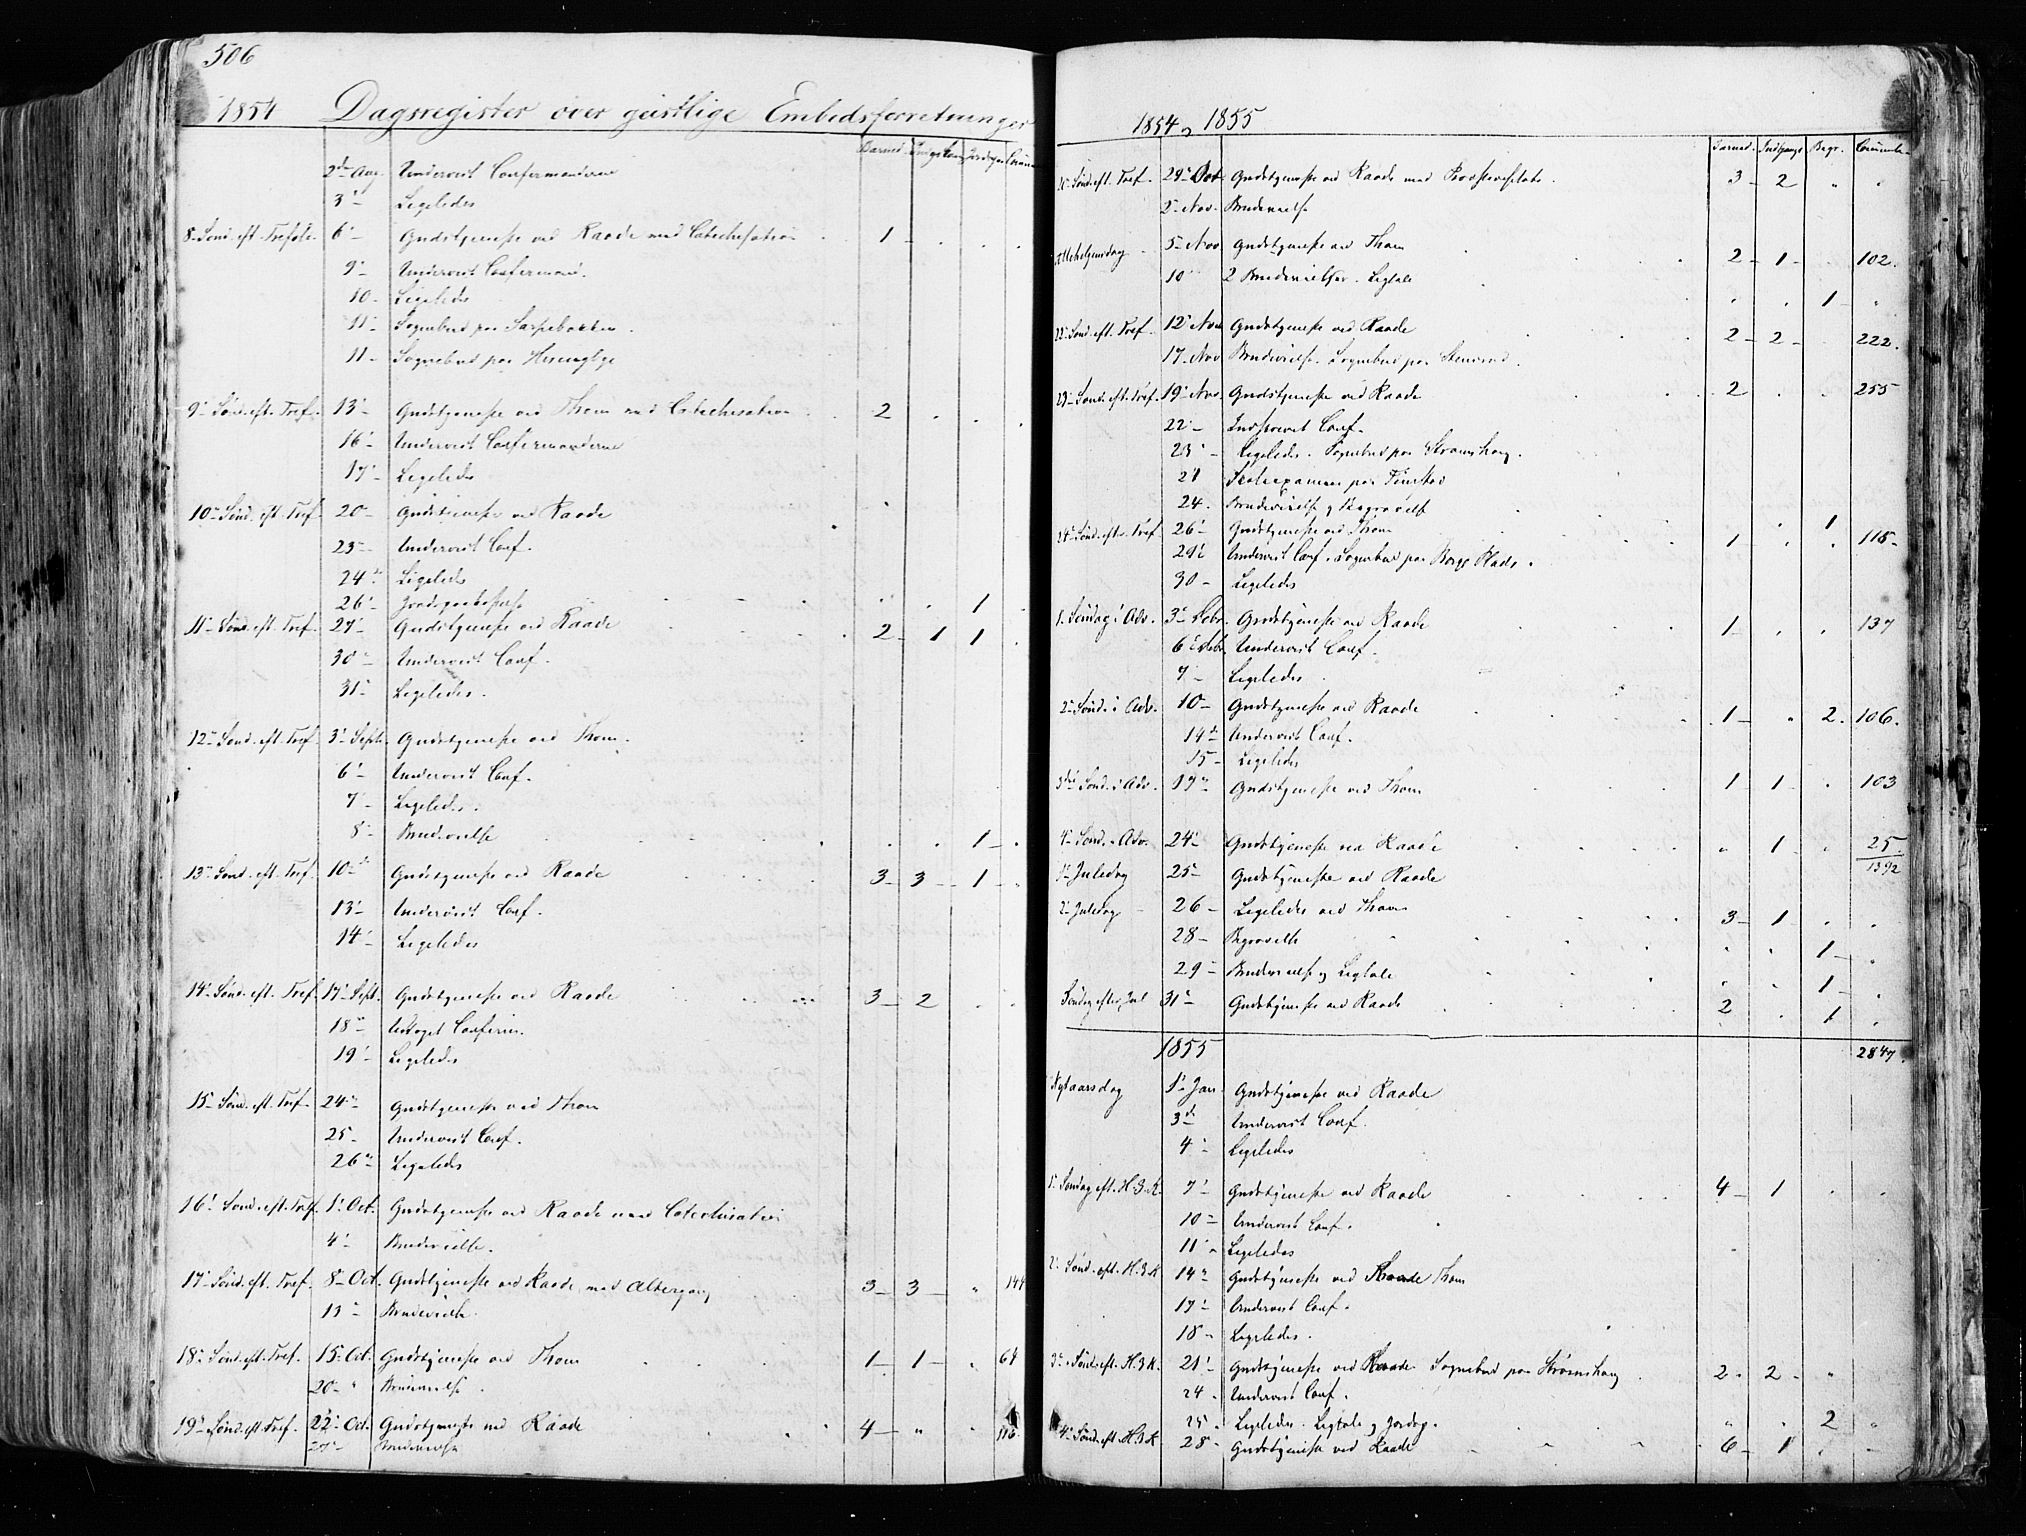 506
1854 Dagsregister over geistlige Embedsforretninger
2de Aug. Underviist Confermanderne
3e Ligeledes
8e Sønd. eft. Trefold. 6e Gudstjeneste ved Raade med Catechisation 1
9e Underviist Conferman.
10 Ligeledes
11e Sognebud paa
11 Sognebud paa
9e Sønd. eft. Tref. 13e Gudstjeneste ved Thom med Catechisation 2
16e Underviist Confermanderne
17e Ligeledes
10e Sønd. eft. Tref. 20 Gudstjeneste ved Raade
23 Underviist Conf.
24de Ligeleds
26e Jordspaakastelse 1
11e Sønd. eft. Tref. 27e Gudstjeneste ved Raade 2 1 1
30e Underviist Conf.
31e Ligeledes.
12e Sønd. eft. Tref. 3e Septr. Gudstjeneste ved Thom.
6e Underviist Conf.
7e Ligeledes.
8e Brudevielse 1
13e Sønd. eft. Tref. 10de Gudstjeneste ved Raade 3 3 1
13e Underviist Conf.
14e Ligeledes
14e Sønd. eft. Tref. 17e Sept. Gudstjeneste ved Raade 3 2
18e Conferm.
19e Ligeledes
15e Sønd. eft. Tref. 24e Gudstjeneste ved Thom
25 Underviist Conf.
26e Ligeledes
16e Sønd. eft. Tref. 1e Oct. Gudstjeneste ved Raade med Catechisation
4e Brudevielse.
17e Sønd. eft. Tref. 8e Oct. Gudstjeneste ved Raade med Altergang 3 3 " 144
13e Brudevielse.
18e Sønd. eft. Tref. 15e Oct. Gudstjeneste ved Thom 1 1 "
20 " Brudevielse.
19e Sønd. eft. Tref. 22e Oct. Gudstjeneste ved Raade 4 "
27e Brudevielse
1854 og 1855
Barned. Indgangs. Begr. Commun.
Sønd. eft. Tref. 29e Oct. Gudstjeneste ved Raade med 3 2 " "
Nov. Brudevielse
Allehelgensdag 5e Nov. Gudstjeneste ved Thom 2 1 102.
10e 2 Brudevielser. Ligtale 1 "
22e Sønd. eft. Tref. 12e Nov. Gudstjeneste ved Raade 2 2 222.
17e Nov. Brudevielse. Sognebud paa
23e Sønd. eft. Tref. 19e Nov. Gudstjeneste ved Raade 2 255
22 Conf.
23e Ligeledes. Sognebud paa Strømshaug.
Skoleexamen paa
24. Brudevielse og Begravelse 1
24e Sønd. eft. Tref. 26e Gudstjeneste ved Thom 1
29e Underviist Conf. Sognebud paa Borge Plads.
30 Ligeledes
1. Søndag i Adv. 3e Debr. Gudstjeneste ved Raade 1 137
6e Debr. Underviist Conf.
7 Ligeledes
2e Sønd. i Adv. 10 Gudstjeneste ved Raade 1 " 2. 106.
14de Underviist Conf.
15 Ligeledes
3die Sønd. i Adv. 17e Gudstjeneste ved Thom 1 1 103
4e Sønd. i Adv. 24e Gudstjeneste ved Raade " 1 25
1392
1e Juledag 25 Gudstjeneste ved Raade
2e Juledag 26 Ligeledes ved Thom 3 1
28 Begravelse 1
29e Brudevielse og Ligtale 1
Søndag efter Jul 31e Gudstjeneste ved Raade 2 1
1855 2847
Nytaarsdag 1e Jan. Gudstjeneste ved Raade
3de Underviist Conf.
4e Ligeledes
1e Søndag eft. H.3.K. 7e Gudstjeneste ved Raade 4 1
10 Underviist Conf.
11e Ligeledes
2e Sønd. eft. H.3.K 14e Gudstjeneste ved Raade Thom
17e Underviist Conf.
18 Ligeledes.
3e Sønd. eft. H.3.K. 21e Gudstjeneste ved Raade Sognebud paa Strømshaug 2 2 "
24 Underviist Conf.
25 Ligeledes. Ligtale og Jordsp. " " 2 "
4e Sønd. eft. H.3.K 28 Gudstjeneste ved Raade 6 1